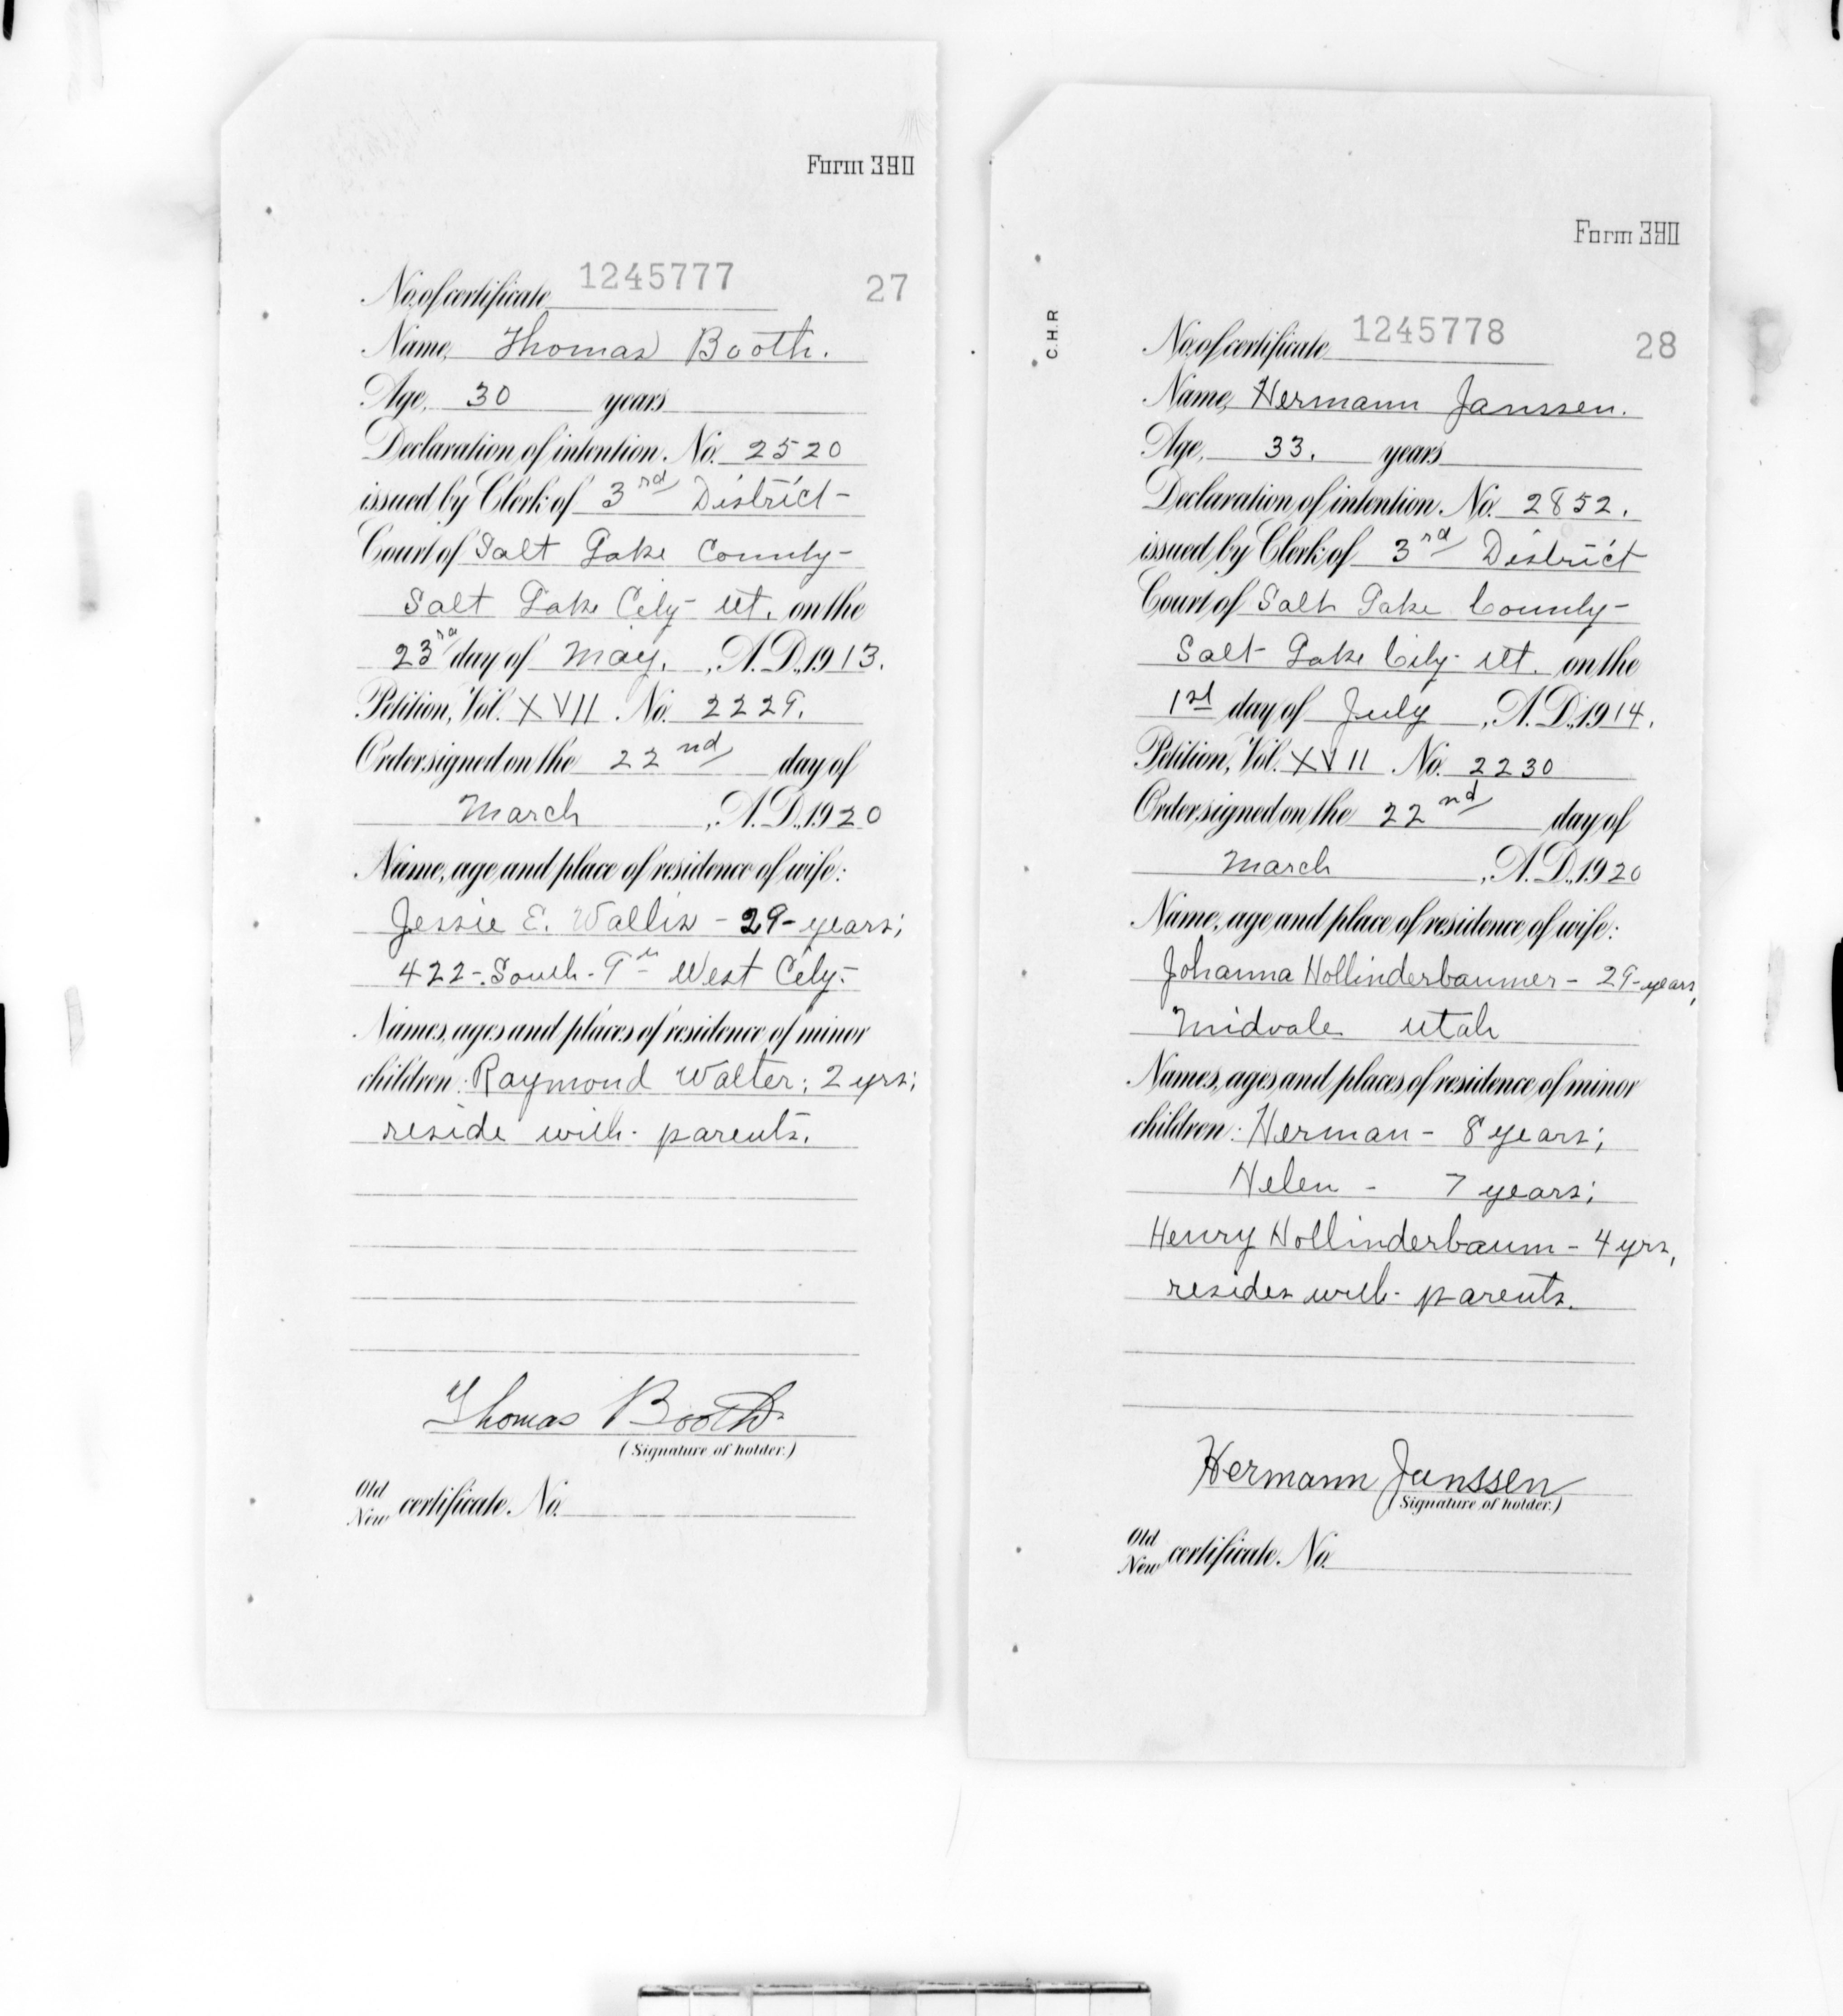 Form 390
No. of certificate 1245777 27
Name, Thomas Booth.
Age, 30 years
Declaration of intention. No. 2520
issued by Clerk of 3rd District-
Court of Salt Lake County-
Salt Lake City- Ut. on the
23rd day of May. , A.D., 1913.
Petition, Vol. XVII. No. 2229.
Order signed on the 22nd day of
March , A.D., 1920
Name, age and place of residence of wife:
Jessie E. Wallis - 29- years;
422-South- 9th West City-
Names, ages and places of residence of minor
children: Raymond Walter; 2 yrs;
reside with- parents.
Thomas Booth
(Signature of holder.)
Old
New certificate. No.
Form 390
C.H.R
No. of certificate 1245778 28
Name, Hermann Janssen.
Age, 33. years
Declaration of intention. No. 2852.
issued by Clerk of 3rd District
Court of Salt Lake County-
Salt Lake City- Ut. on the
1st day of July , A.D., 1914.
Petition, Vol. XVII No. 2230
Order signed on the 22nd day of
March , A.D., 1920
Name, age and place of residence of wife:
Johanna Hollinderbaumer - 29-years,
Midvale Utah
Names, ages and places of residence of minor
children: Herman - 8 years;
Helen - 7 years;
Henry Hollinderbaum - 4 yrs,
resides with- parents.
Hermann Janssen
(Signature of holder.)
Old
New certificate. No.